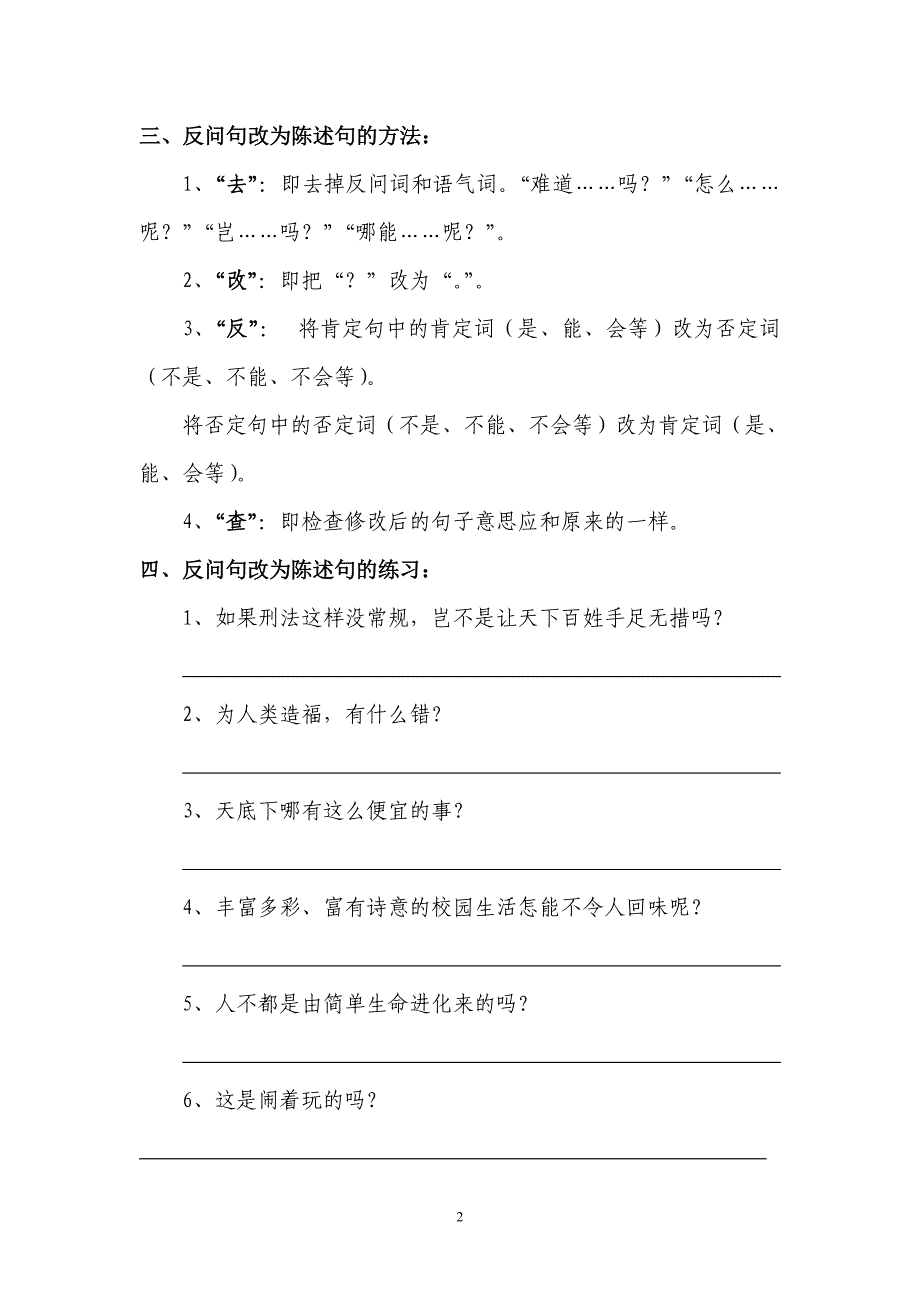 三、反问句改为陈述句的方法：
1、“去”：即去掉反问词和语气词。“难道……吗？”“怎么……
呢？”“岂……吗？”“哪能……呢？”。
2、“改”：即把“？”改为“。”。
3、“反”： 将肯定句中的肯定词（是、能、会等）改为否定词
（不是、不能、不会等）。
将否定句中的否定词（不是、不能、不会等）改为肯定词（是、
能、会等）。
4、“查”：即检查修改后的句子意思应和原来的一样。
四、反问句改为陈述句的练习：
1、如果刑法这样没常规，岂不是让天下百姓手足无措吗？
2、为人类造福，有什么错？
3、天底下哪有这么便宜的事？
4、丰富多彩、富有诗意的校园生活怎能不令人回味呢？
5、人不都是由简单生命进化来的吗？
6、这是闹着玩的吗？
2